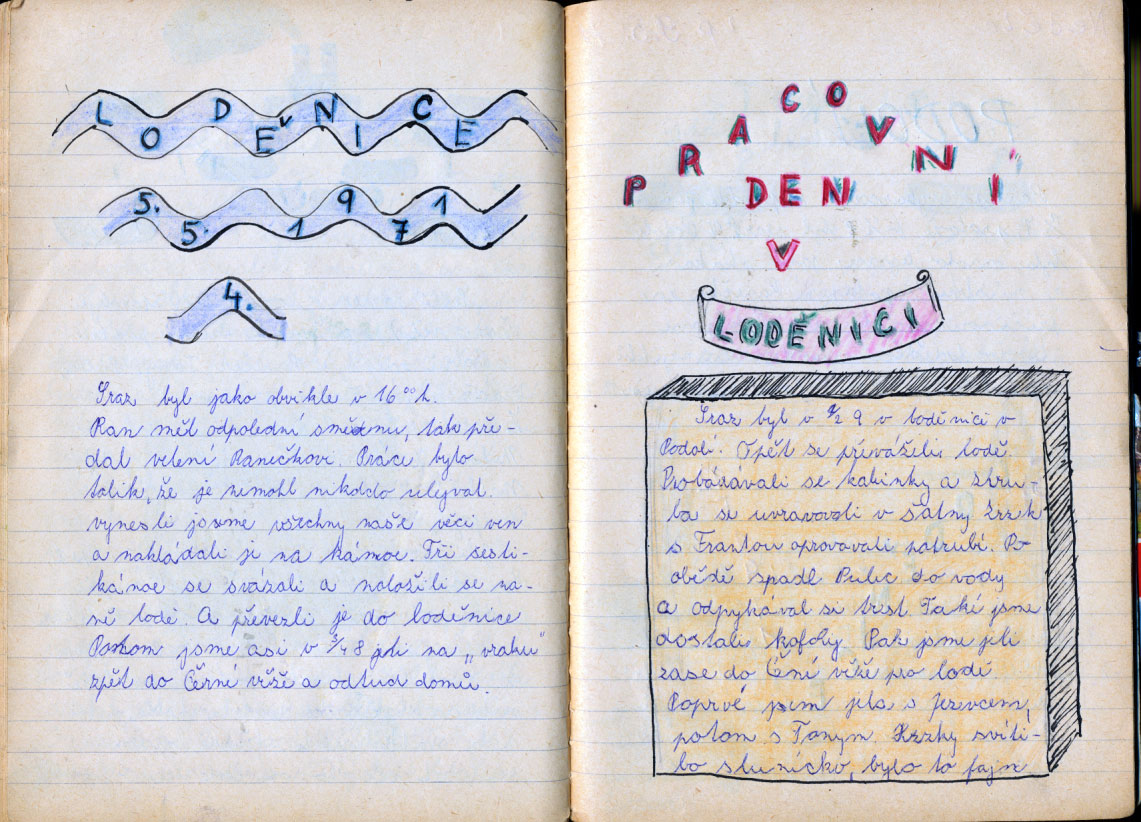 LODĚNICE
5. 5. 1971
4.
Sraz byl jako obvikle v 16⁰⁰h.
Ran měl odpolední směnu, tak pře-
dal velení Ranečkovi. Práce bylo
tolik, že je nemohl nikddo ulejvat.
vynesli jsme všechny naše věci ven
a nakládali je na kánoe. Tři šesti-
kánoe se svázali a naložili se na-
ně lodě. A převezli je do loděnice
Potom jsme asi v 3/4 8 jeli na „vraku"
zpět do Černé věže a odtud domů.
PRACOVNÍ
DEN
V
LODĚNICI
Sraz byl v 1/2 9 v loděnici v
Podolí. Opět se převáželi lodě.
Probádávali se kabinky a zhru-
ba se upravovali v šatny Zrzek
s Frantou opravovali potrubí. Po
obědě spadl Pulec do vody
a odpykával si trest. Také jsme
dostali kofoly. Pak jsme jeli
zase do Čení věže pro lodě
Poprvé jsem jela s Jezevcem,
potom s Tonym. Hezky svíti-
lo sluníčko, bylo to fajn